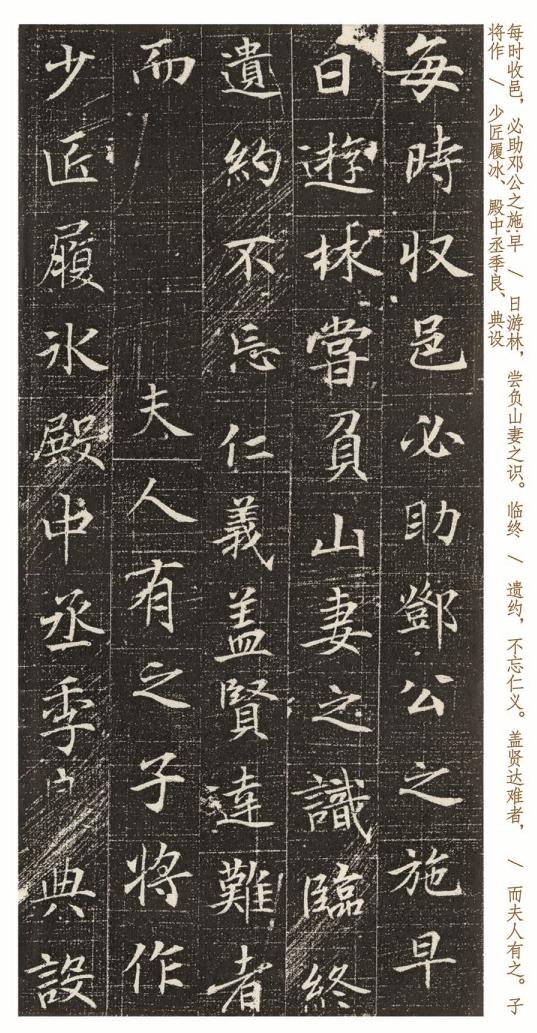 每时收邑，必助邓公之施。早 / 日游林，尝负山妻之识。临终 / 遗约，不忘仁义。盖贤达难者， / 而夫人有之。子
将作 / 少匠履冰、殿中丞季良、典设
每時収邑必助鄧公之施早
日遊林嘗負山妻之識臨終
遺約不忘仁義盖賢達難者
而夫人有之子將作
少匠履氷殿中丞季典設